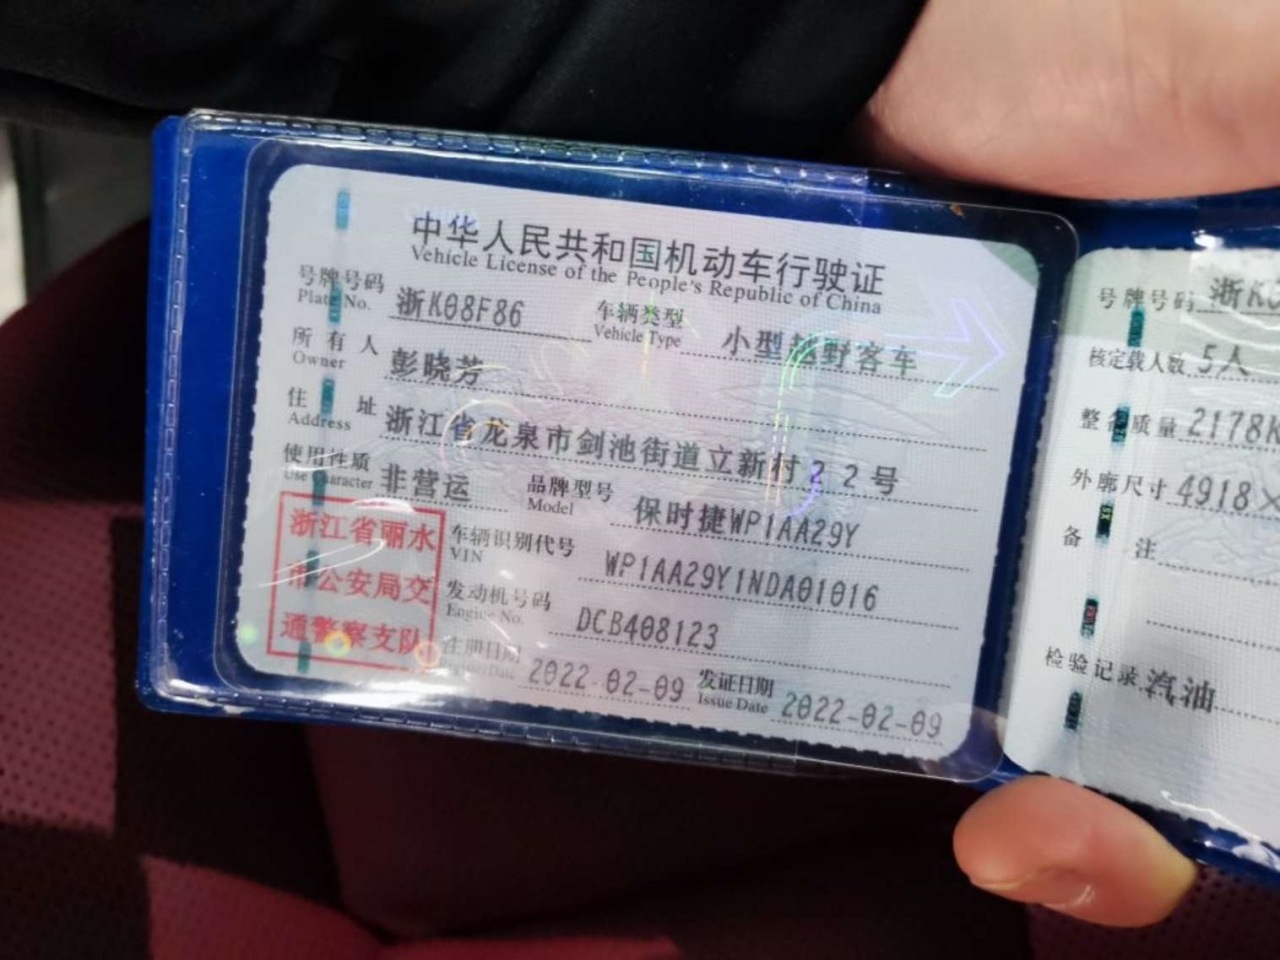 中华人民共和国机动车行驶证
Vehicle License of the People's Republic of China
号牌号码 浙K08F86 车辆类型 小型越野客车
Plate No. Vehicle Type
所有人 彭晓芳
Owner
住址 浙江省龙泉市剑池街道立新村22号
Address
使用性质 非营运 品牌型号 保时捷WP1AA29Y
Use Character Model
浙江省丽水
市公安局交
通警察支队
车辆识别代号 WP1AA29Y1NDA01016
VIN
发动机号码 DCB408123
Engine No.
注册日期 2022-02-09 发证日期 2022-02-09
Register Date Issue Date
号牌号码 浙K0
核定载人数 5人
整备质量 2178K
外廓尺寸 4918×
备注
检验记录 汽油